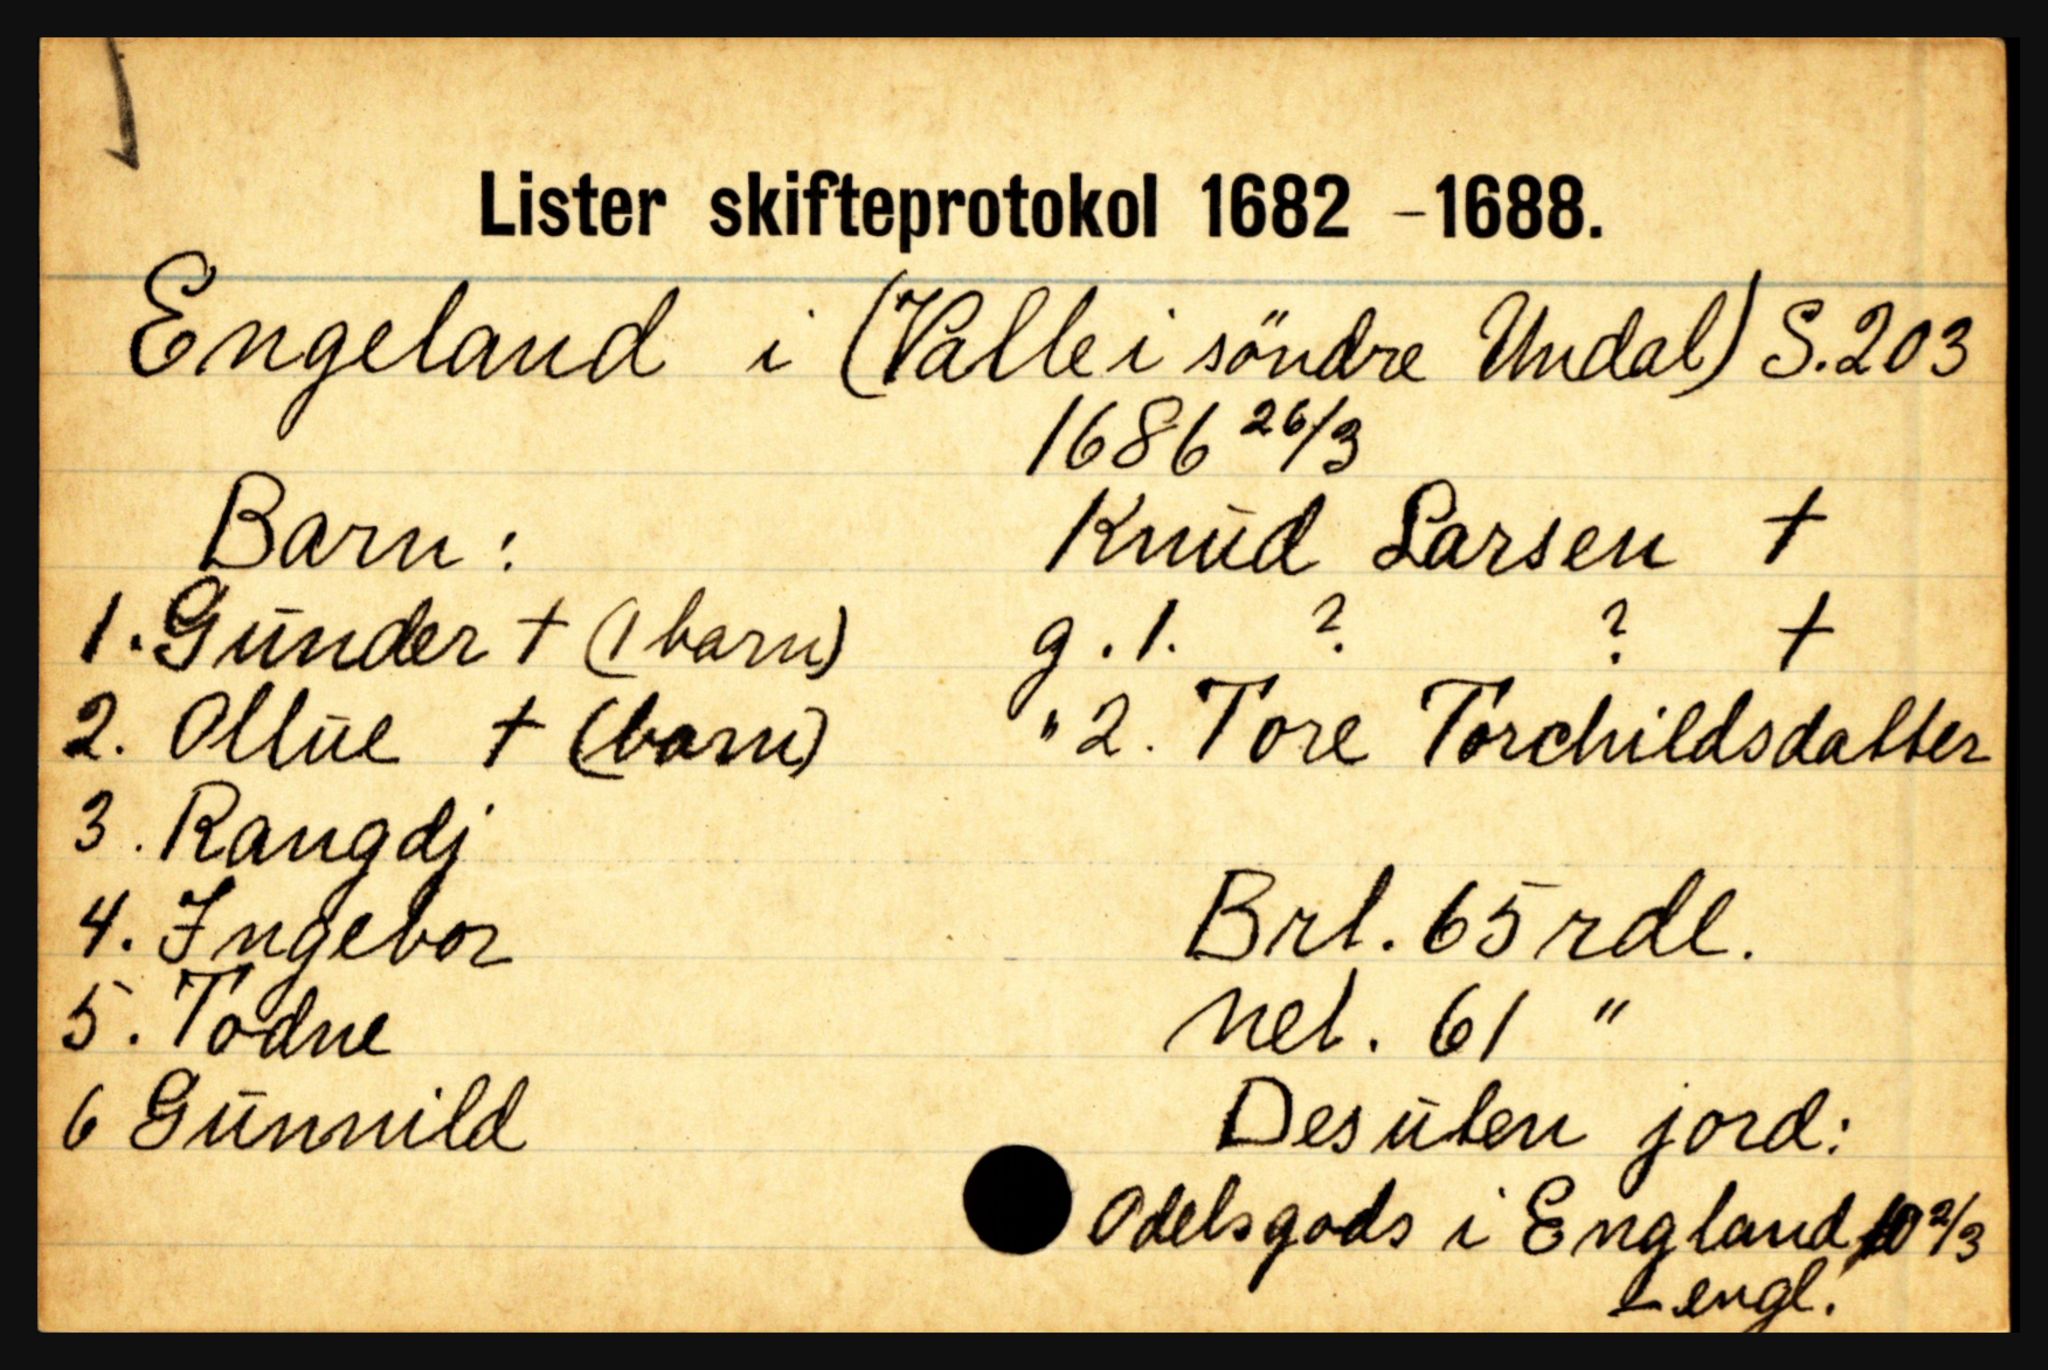 Lister skifteprotokol 1682 -1688.
Engeland i (Valle i söndre Undal) S. 203
1686 26/3
Knud Larsen †
g. 1. ? ? †
" 2. Tore Torchildsdatter
Barn:
1. Gunder † (1 barn)
2. Ollue † (barn)
3. Rangdj
4. Ingebor
5. Todne
6 Gunnild
Brt. 65 rdl.
net. 61 "
Desuten jord:
Odelsgods i England 10 2/3
L engl.